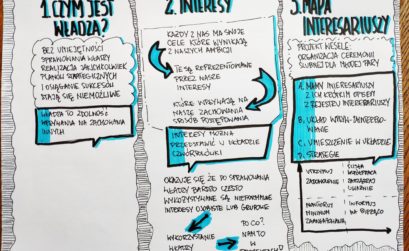 1. CZYM JEST
WŁADZA?
BEZ UMIEJĘTNOŚCI
SPRAWOWANIA WŁADZY
REALIZACJA JAKICHKOLWIEK
PLANÓW STRATEGICZNYCH
I OSIĄGANIE SUKCESÓW
STAJĄ SIĘ NIEMOŻLIWE
WŁADZA TO ZDOLNOŚĆ
WPŁYWANIA NA ZACHOWANIA
INNYCH
2. INTERESY
KAŻDY Z NAS MA SWOJE
CELE KTÓRE WYNIKAJĄ
Z NASZYCH AMBICJI
TE SĄ REPREZENTOWANE
PRZEZ NASZE
INTERESY
KTÓRE WPŁYWAJĄ NA
NASZE ZACHOWANIA
SPOSÓB POSTĘPOWANIA
INTERESY MOŻNA
PRZEDSTAWIĆ W UKŁADZIE
CZWÓRKÓWEK
OKAZUJE SIĘ ŻE DO SPRAWOWANIA
WŁADZY BARDZO CZĘSTO
WYKORZYSTYWANE SĄ NIEFORMALNE
INTERESY OSOBISTE LUB GRUPOWE
WYKORZYSTANIE
WŁADZY
TO CO?
NAM TO
W
3. MAPA
INTERESARIUSZY
PROJEKT WESELE:
ORGANIZACJA CEREMONII
ŚLUBNEJ DLA MŁODEJ PARY
A. MAPY INTERESARIUSZY
Z ICH KRÓTKIM OPISEM
Z REJESTRU INTERESARIUSZY
B. UKŁAD WPŁYW-ZAINTERESO-
WANIE
C. UMIESZCZENIE W UKŁADZIE
D. STRATEGIE
ZADOWOLENIE
ŚCISŁA
WSPÓŁPRACA
ZARZĄDZAJ
UWAŻNIE
MONITORUJ
MINIMUM
ZAANGAŻOWANIA
INFORMUJ
NA BIEŻĄCO